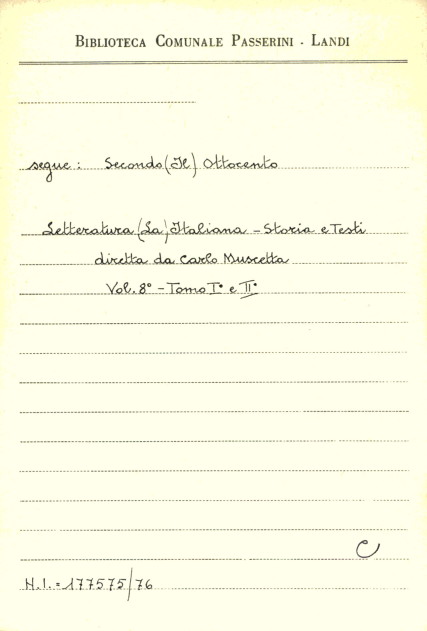 BIBLIOTECA COMUNALE PASSERINI - LANDI
segue: Secondo (Il) Ottocento
Letteratura (La) Italiana - Storia e Testi
diretta da Carlo Muscetta
Vol. 8° - Tomo I° e II°
C
N.I. = 177575/76